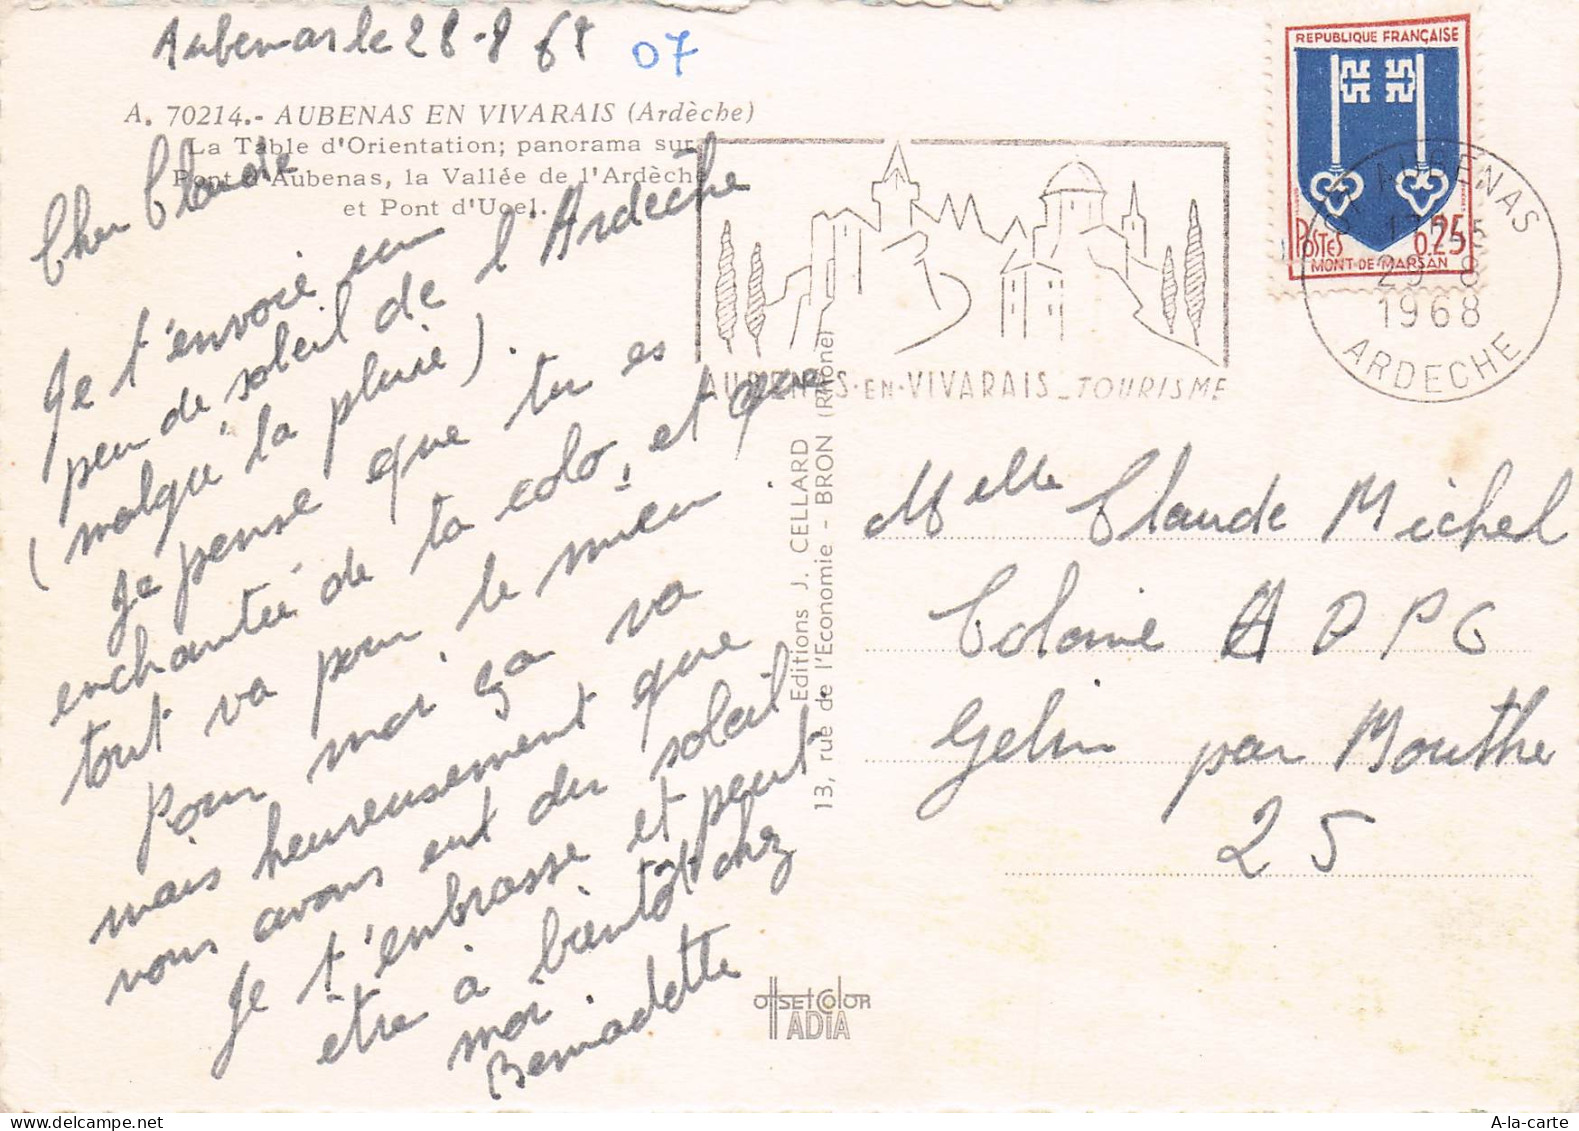 Aubenas le 28-8 68
07
A. 70214.- AUBENAS EN VIVARAIS (Ardèche)
La Table d'Orientation; panorama sur
Pont d'Aubenas, la Vallée de l'Ardèche
et Pont d'Ucel.
Cher Claude
Je t'envoie un
peu de soleil de l'Ardèche
(malgré la pluie).
Je pense que tu es
enchantée de ta colo, et que
tout va pour le mieux.
Pour moi ça va
mais heureusement que
nous avons eut du soleil
Je t'embrasse et peut-
être à bientôt chez
moi.
Bernadette
Editions J. CELLARD
13, rue de l'Economie - BRON (Rhône)
OFFSET COLOR
IADIA
REPUBLIQUE FRANÇAISE
POSTES 0.25
MONT-DE-MARSAN
AUBENAS-EN-VIVARAIS_TOURISME
AUBENAS
1968
ARDECHE
Melle Claude Michel
Colonie A D P C
Gelin par Mouthe
25
A-la-carte